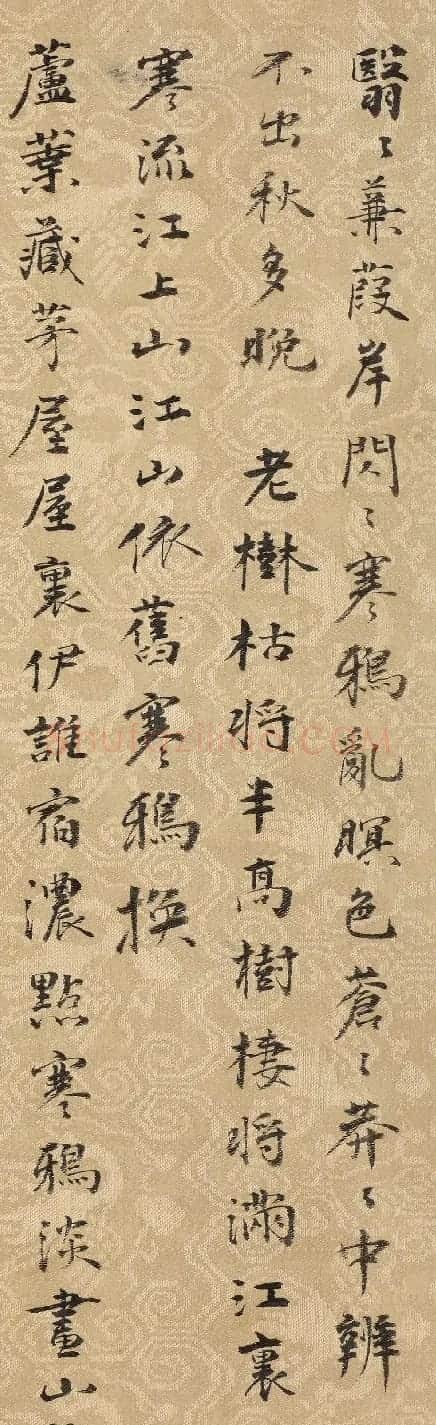 翳〻蒹葭岸閃〻寒鴉亂暝色蒼〻莽〻中辨
不出秋多晚　老樹枯將半高樹棲將滿江裏
寒流江上山江山依舊寒鴉換
蘆葉藏茅屋屋裏伊誰宿濃點寒鴉淡畫山